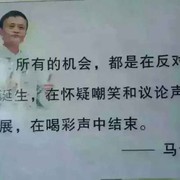 所有的机会，都是在反对
诞生，在怀疑嘲笑和议论声
展，在喝彩声中结束。
——马